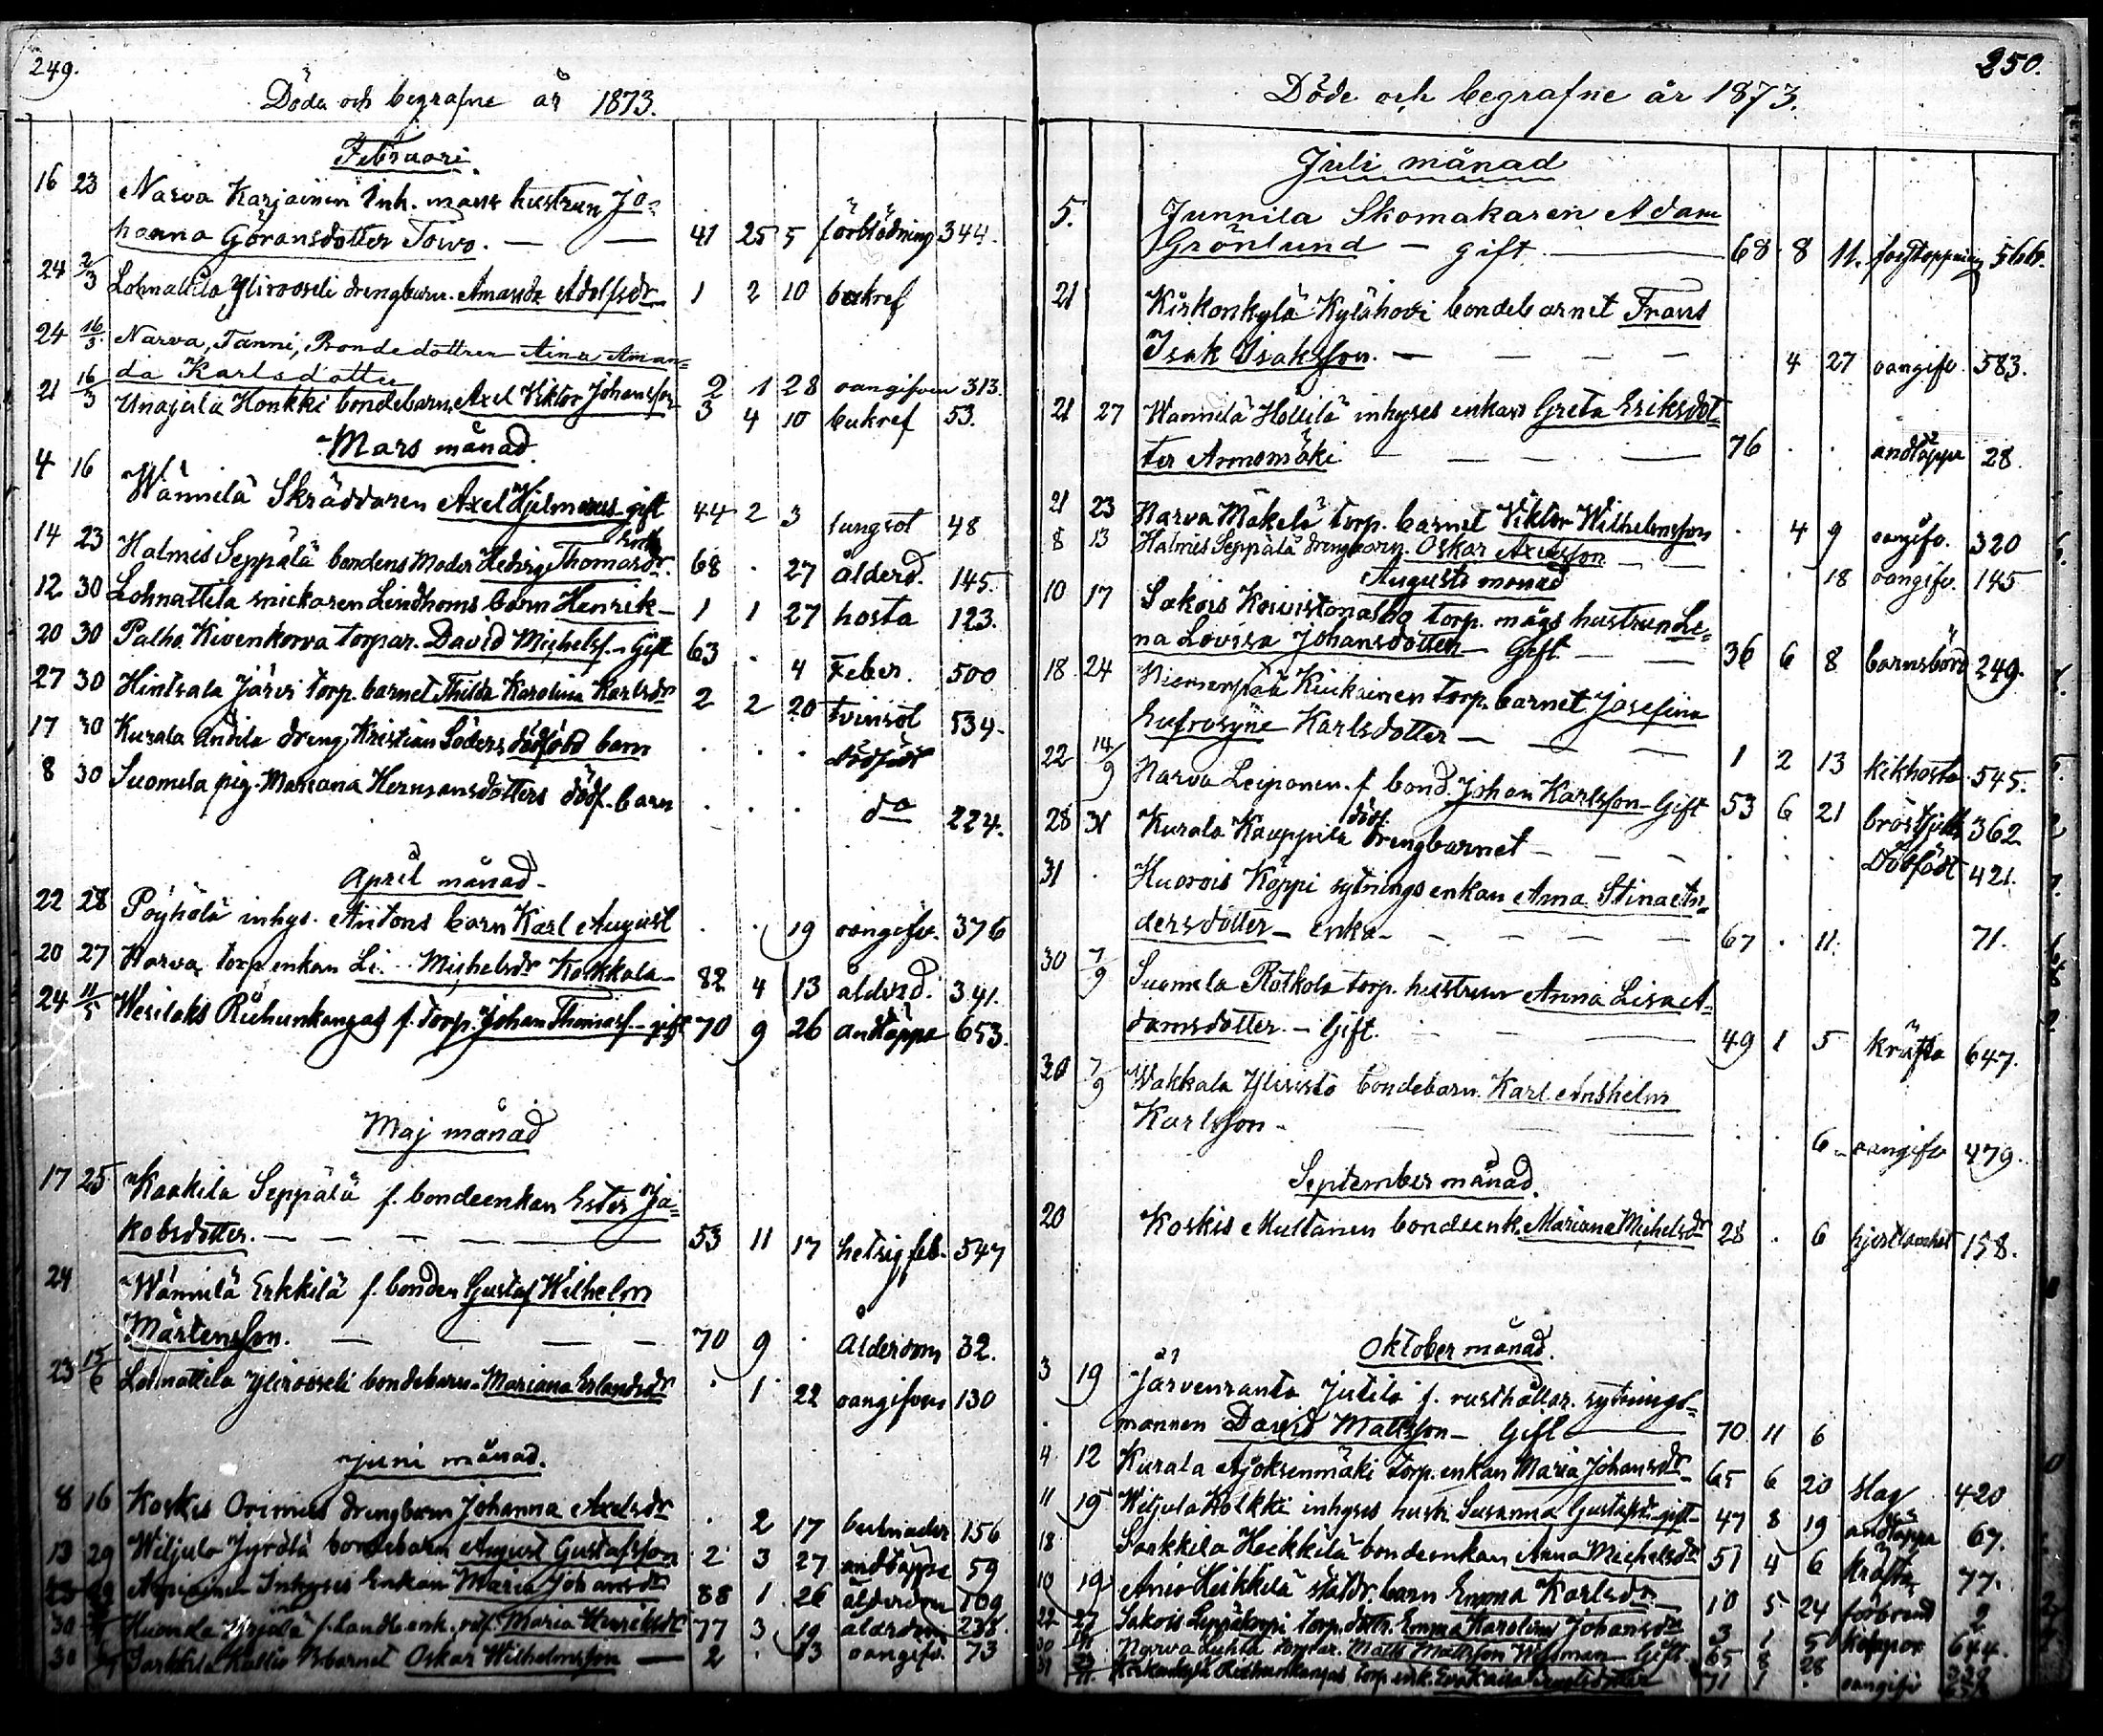 249.
Döda och begrafne år 1873.
Februari.
16 23 Narva Karjainen Inh. mans hustrun Jo-
hanna Göransdotter Towo. — — 41 25 5 förblödning 344.
24 2/3 Lohnattila Ylirooseli drengbarn. Amanda Adolfsdr 1 2 10 bukref
24 16/3 Narva, Tanni, Bondedottren Aina Aman-
da Karlsdotter 2 1 28 oangifven 313.
21 16/3 Unajala Honkki bondebarn, Axel Viktor Johansson 3 4 10 bukref 53.
Mars månad.
4 16 Wännilä Skräddaren Axel Hjelmerus gift 44 2 3 lungsot 48
14 23 Halmis Seppälä bondens Moder Hedvig Thomasdr. enka 68 . 27 ålderd. 145.
12 30 Lohnattila snickaren Lindhoms barn Henrik — 1 1 27 hosta 123.
20 30 Palho Kivenkorva torpar. David Michelsf. - Gift 63 . 4 Feber. 500
27 30 Hintsala Järvi torp. barnet Thilda Karolina Karlsdr 2 2 20 tvinsot 534.
17 30 Kurala Andila dreng, Kristian Söders dödfödd barn . . . dödfödt
8 30 Suomela pig. Mariana Hermansdotters dödf. barn . . . do 224.
April månad.
22 28 Pöyhölä inhys. Antons barn Karl August . . 19 oangifv. 376
20 27 Narva torp enkan Li... Michelsdr Kokkala — 82 4 13 ålderd. 341.
24 11/5 Wesilaks Riihunkangas f. Torp. Johan Thomasf. - gift 70 9 26 andtäppa 653.
Maj månad
17 25 Kaakila Seppälä f. bondeenkan Ester Ja-
kobsdotter. — — — 53 11 17 hetsig feb. 547
24 Wännilä Erkkilä f. bonden Gustaf Wilhelm
Mårtensson. — — — 70 9 . Ålderdom 32.
23 15/6 Lohnattila Ylirooseli bondebarn - Mariana Erlandsdr . 1 22 oangifven 130
Juni månad.
8 16 Koskis Orimus drengbarn Johanna Axelsdr . 2 17 156
13 29 Wiljula Jyrölä bondebarn August Gustafsson 2 3 27 andtäppa 59
23 29 Inhyses Enkan Maria Johansdr 88 1 26 ålderdom 109
30 Maria Henriksdr 77 3 19 ålderdom 238.
30 Sarkkila Kallio barnet Oskar Wilhelmsson — 2 . 13 oangifv. 73
250.
Döde och begrafne år 1873.
Juli månad
5. Junnila Skomakaren Adam
Grönlund — gift — 68 8 11. förstoppning 566.
21 Kirkonkylä Kylähovi bondebarnet Frans
Isak Isaksson. — — — — . 4 27 oangifv. 583.
21 27 Wannilä Hollilä inhyses enkan Greta Eriksdot-
ter Annomäki — — — 76 . . andtäppa 28.
21 23 Narva Mäkelä torp. barnet Viktor Wilhelmsson . 4 9 oangifv. 320
8 13 Halmis Seppälä drengbarn. Oskar Axelsson — . . 18 oangifv. 145
Augusti månad
10 17 Sakois Koivistonalho torp. mågs hustrun Le-
na Lovisa Johansdotter — Gift — — 36 6 8 barnsbörd 249.
18 24 Niemenpää Kiukainen torp. barnet Josefina
Eufrosyne Karlsdotter — — — 1 2 13 kikhosta 545.
22 14/9 Narva Leiponen. f. bond. Johan Karlsson - Gift 53 6 21 362
28 31 Kurala Kauppila dödf. drengbarnet — — — . . . Dödfödt 421.
31 . Huovois Köppi sytnings enkan Anna Stina An-
dersdotter — Enka — — — — 67 . 11. 71.
30 7/9 Suomela Rotkola torp. hustrun Anna Lisa A-
damsdotter. — Gift. — — 49 1 5 kräfta 647.
30 7/9 Wakkala Ylisisto bondebarn. Karl Anshelm
Karlsson - . . 6 oangifv 479.
September månad.
20 Koskis Multanen bondeenk. Mariana Michelsdr 28 . 6 158.
Oktober månad.
3 19 Järvenranta Jutila f. rusthållar. sytnings-
mannen David Mattsson — Gift — 70 11 6
4 12 Kurala Ajoksenmäki torp. enkan Maria Johansdr — 65 6 20 slag 420
11 19 Wiljula Kolkki inhyses hustr. Susanna Gustafsdr gift — 47 8 19 andtäppa 67.
18 Sarkkila Heikkilä bondeenkan Anna Michelsdr 51 4 6 kräfta 77.
10 19 Anio Heikkilä statdr. barn Emma Karlsdr. 10 5 24 förbränd 2
22 27 Sakois torp. dottr. Emma Karolina Johansdr 3 1 5 koppor 644.
30 Narva torpar. Matts Mattsson Wessman — Gift. 65 8 28
31 torp. enk. Eva Kaisa 71 1 . oangifv